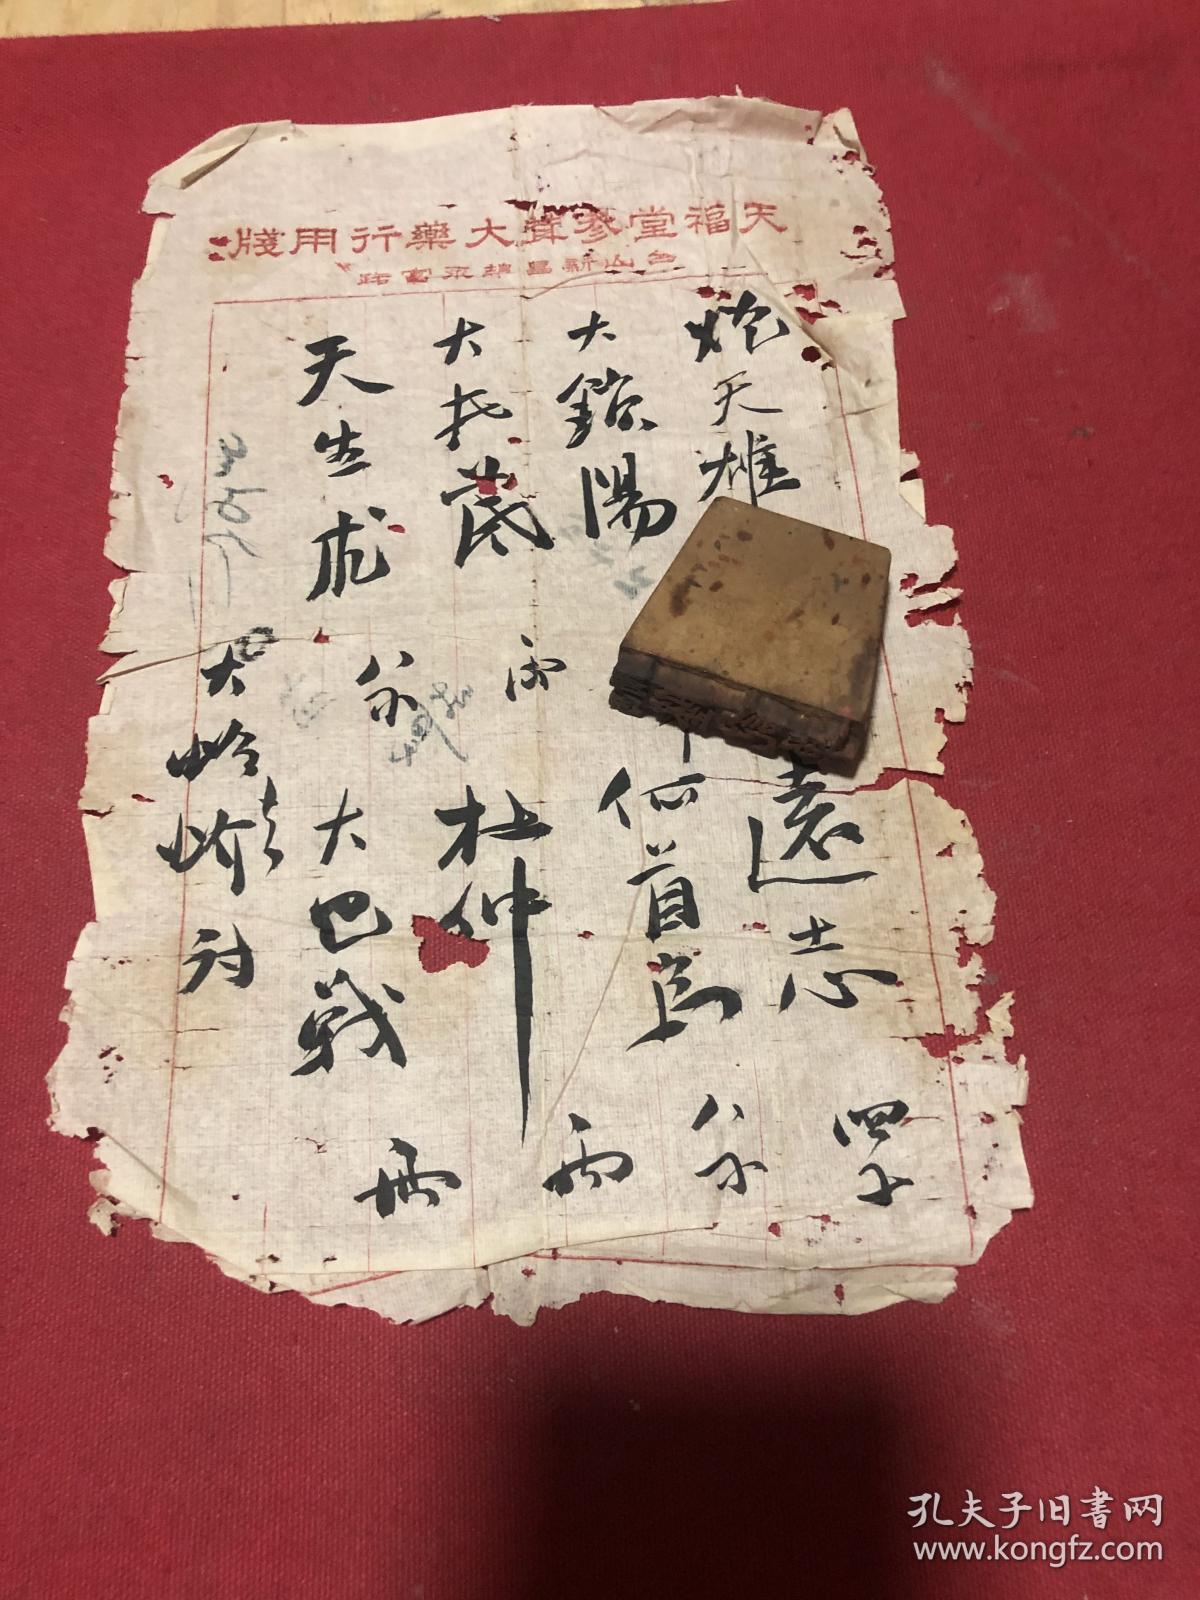 天福堂參茸大藥行用牋
台山新昌華永富路
炮天雄
遠志
大鎖陽
何首烏 分
大北茋 両
杜仲 両
天生朮 分
大巴戟 両
大蛤蚧 对
孔夫子旧书网
www.kongfz.com